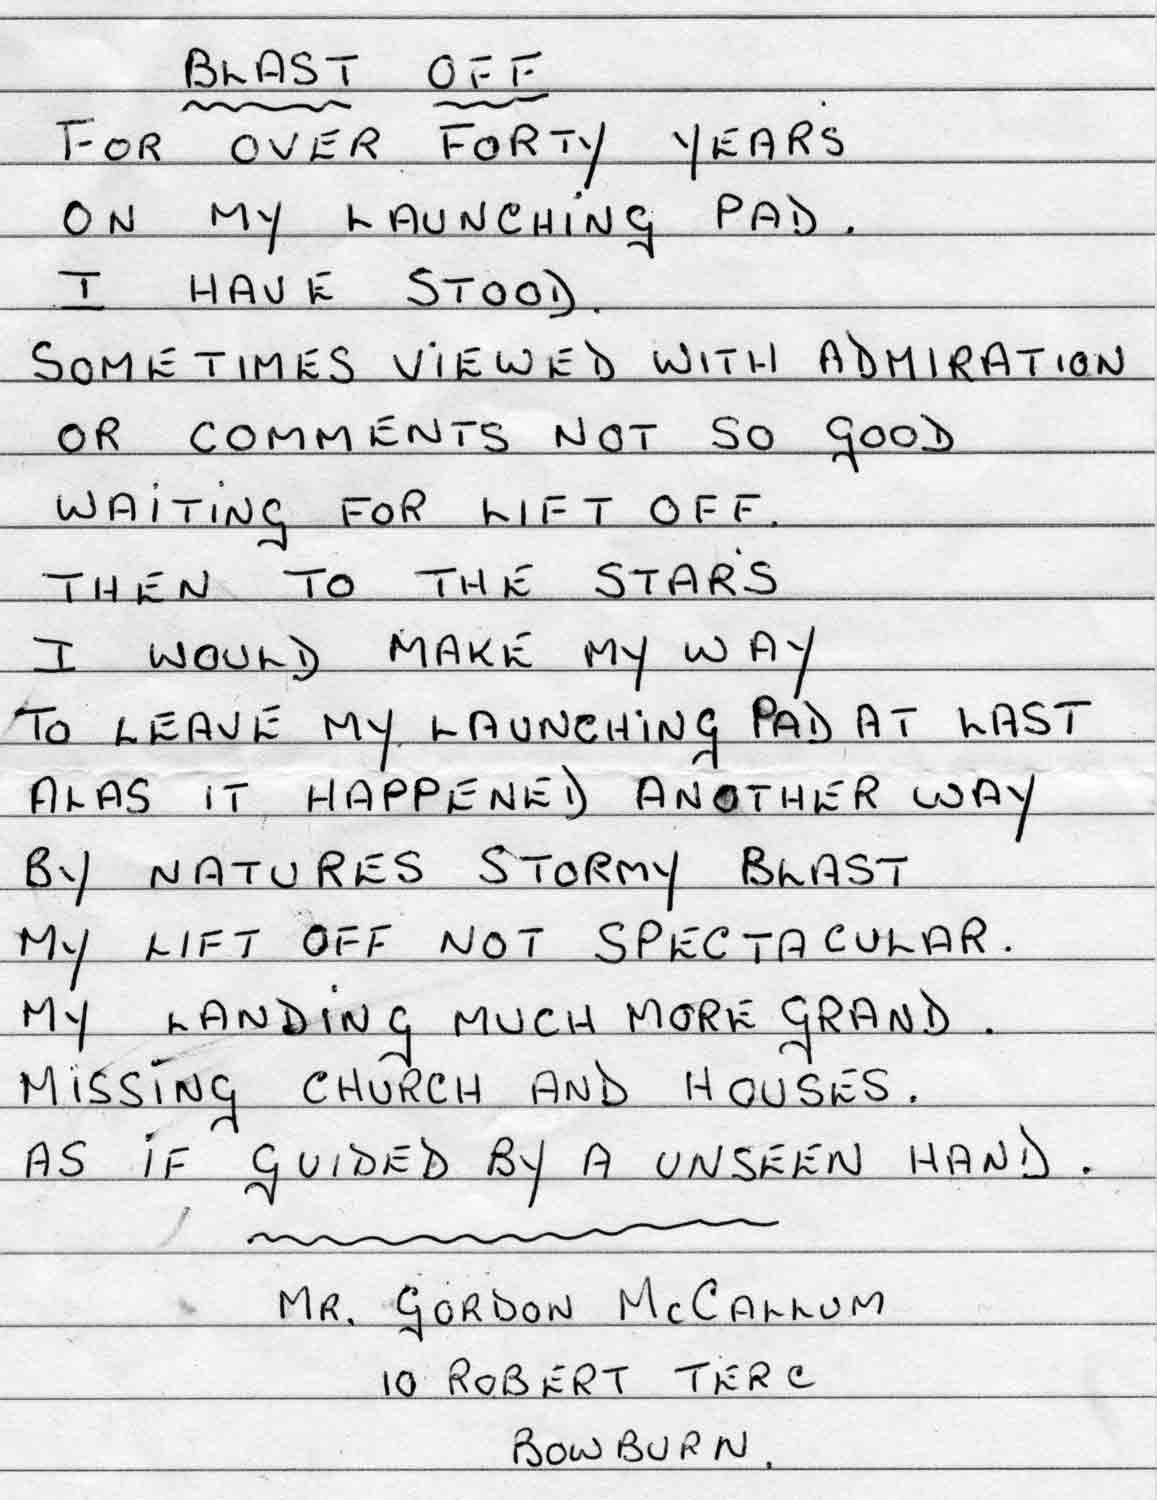 BLAST OFF
FOR OVER FORTY YEARS
ON MY LAUNCHING PAD.
I HAVE STOOD.
SOMETIMES VIEWED WITH ADMIRATION
OR COMMENTS NOT SO GOOD
WAITING FOR LIFT OFF.
THEN TO THE STARS
I WOULD MAKE MY WAY
TO LEAVE MY LAUNCHING PAD AT LAST
ALAS IT HAPPENED ANOTHER WAY
BY NATURES STORMY BLAST
MY LIFT OFF NOT SPECTACULAR.
MY LANDING MUCH MORE GRAND.
MISSING CHURCH AND HOUSES.
AS IF GUIDED BY A UNSEEN HAND.
MR. GORDON McCALLUM
10 ROBERT TERC
BOWBURN.